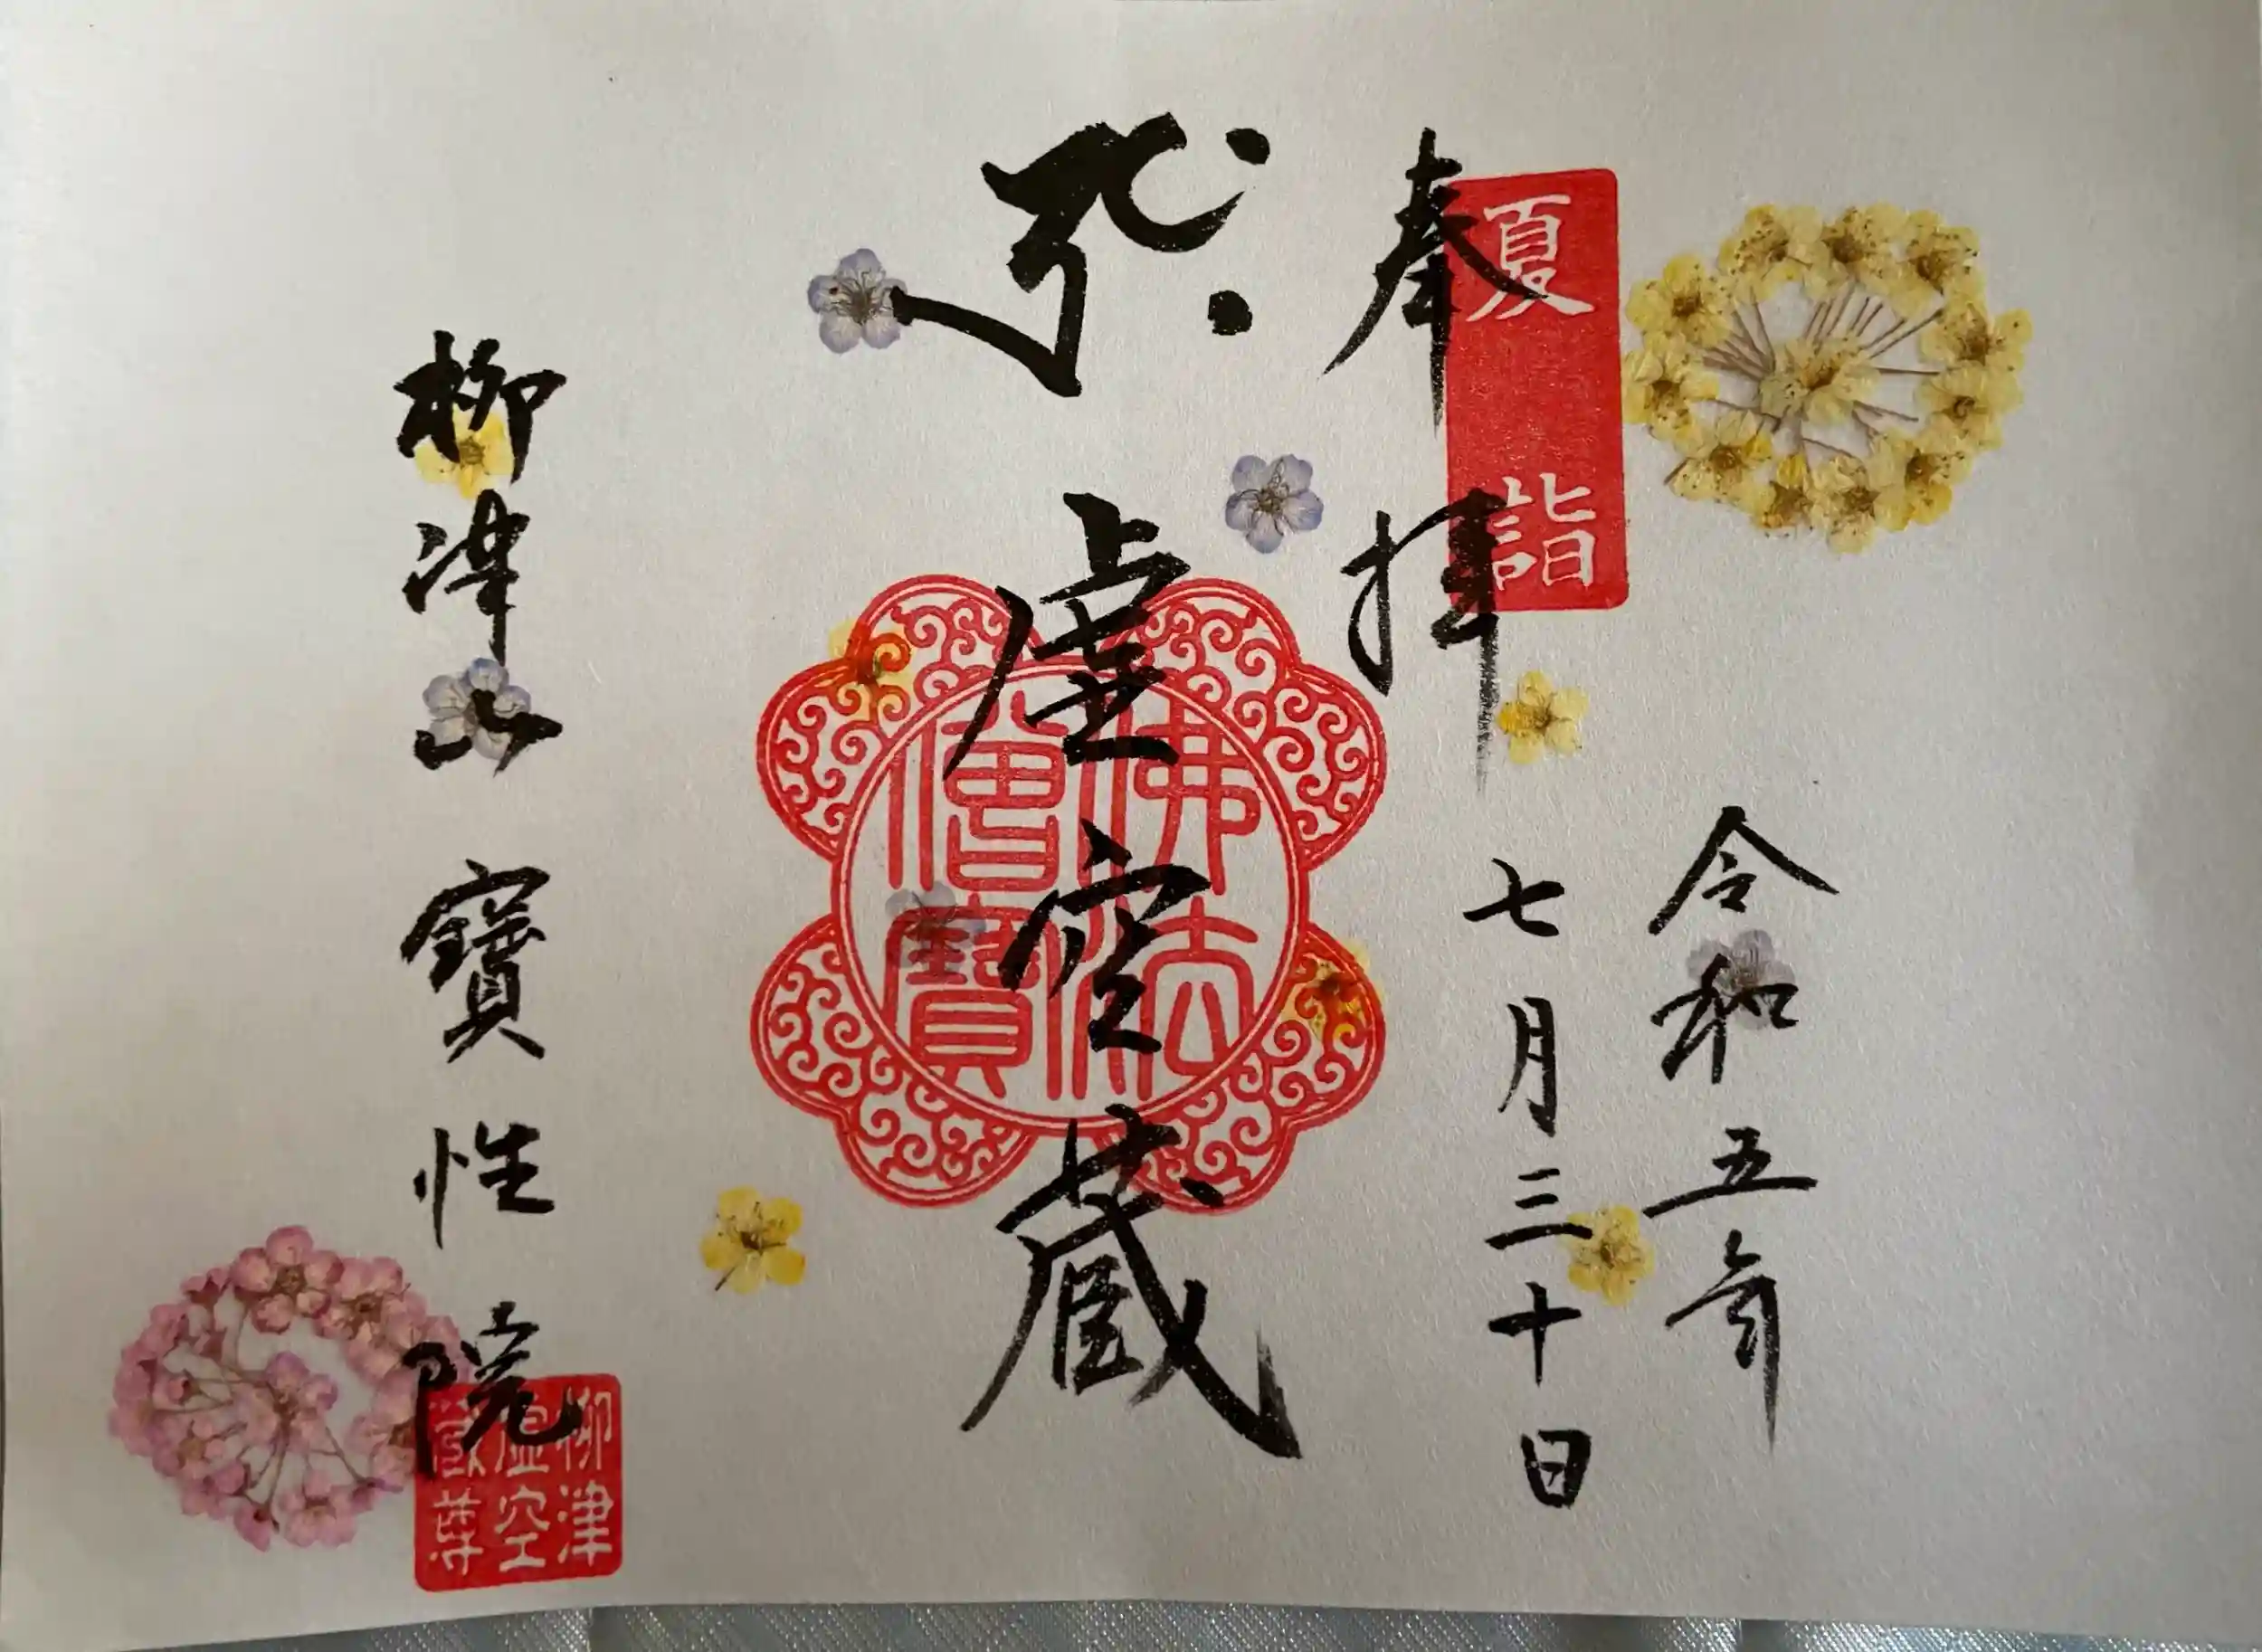 奉拝
夏詣
令和五年
七月三十日
虚空蔵
佛法僧寳
柳津山 寳性院
柳津虚空蔵尊